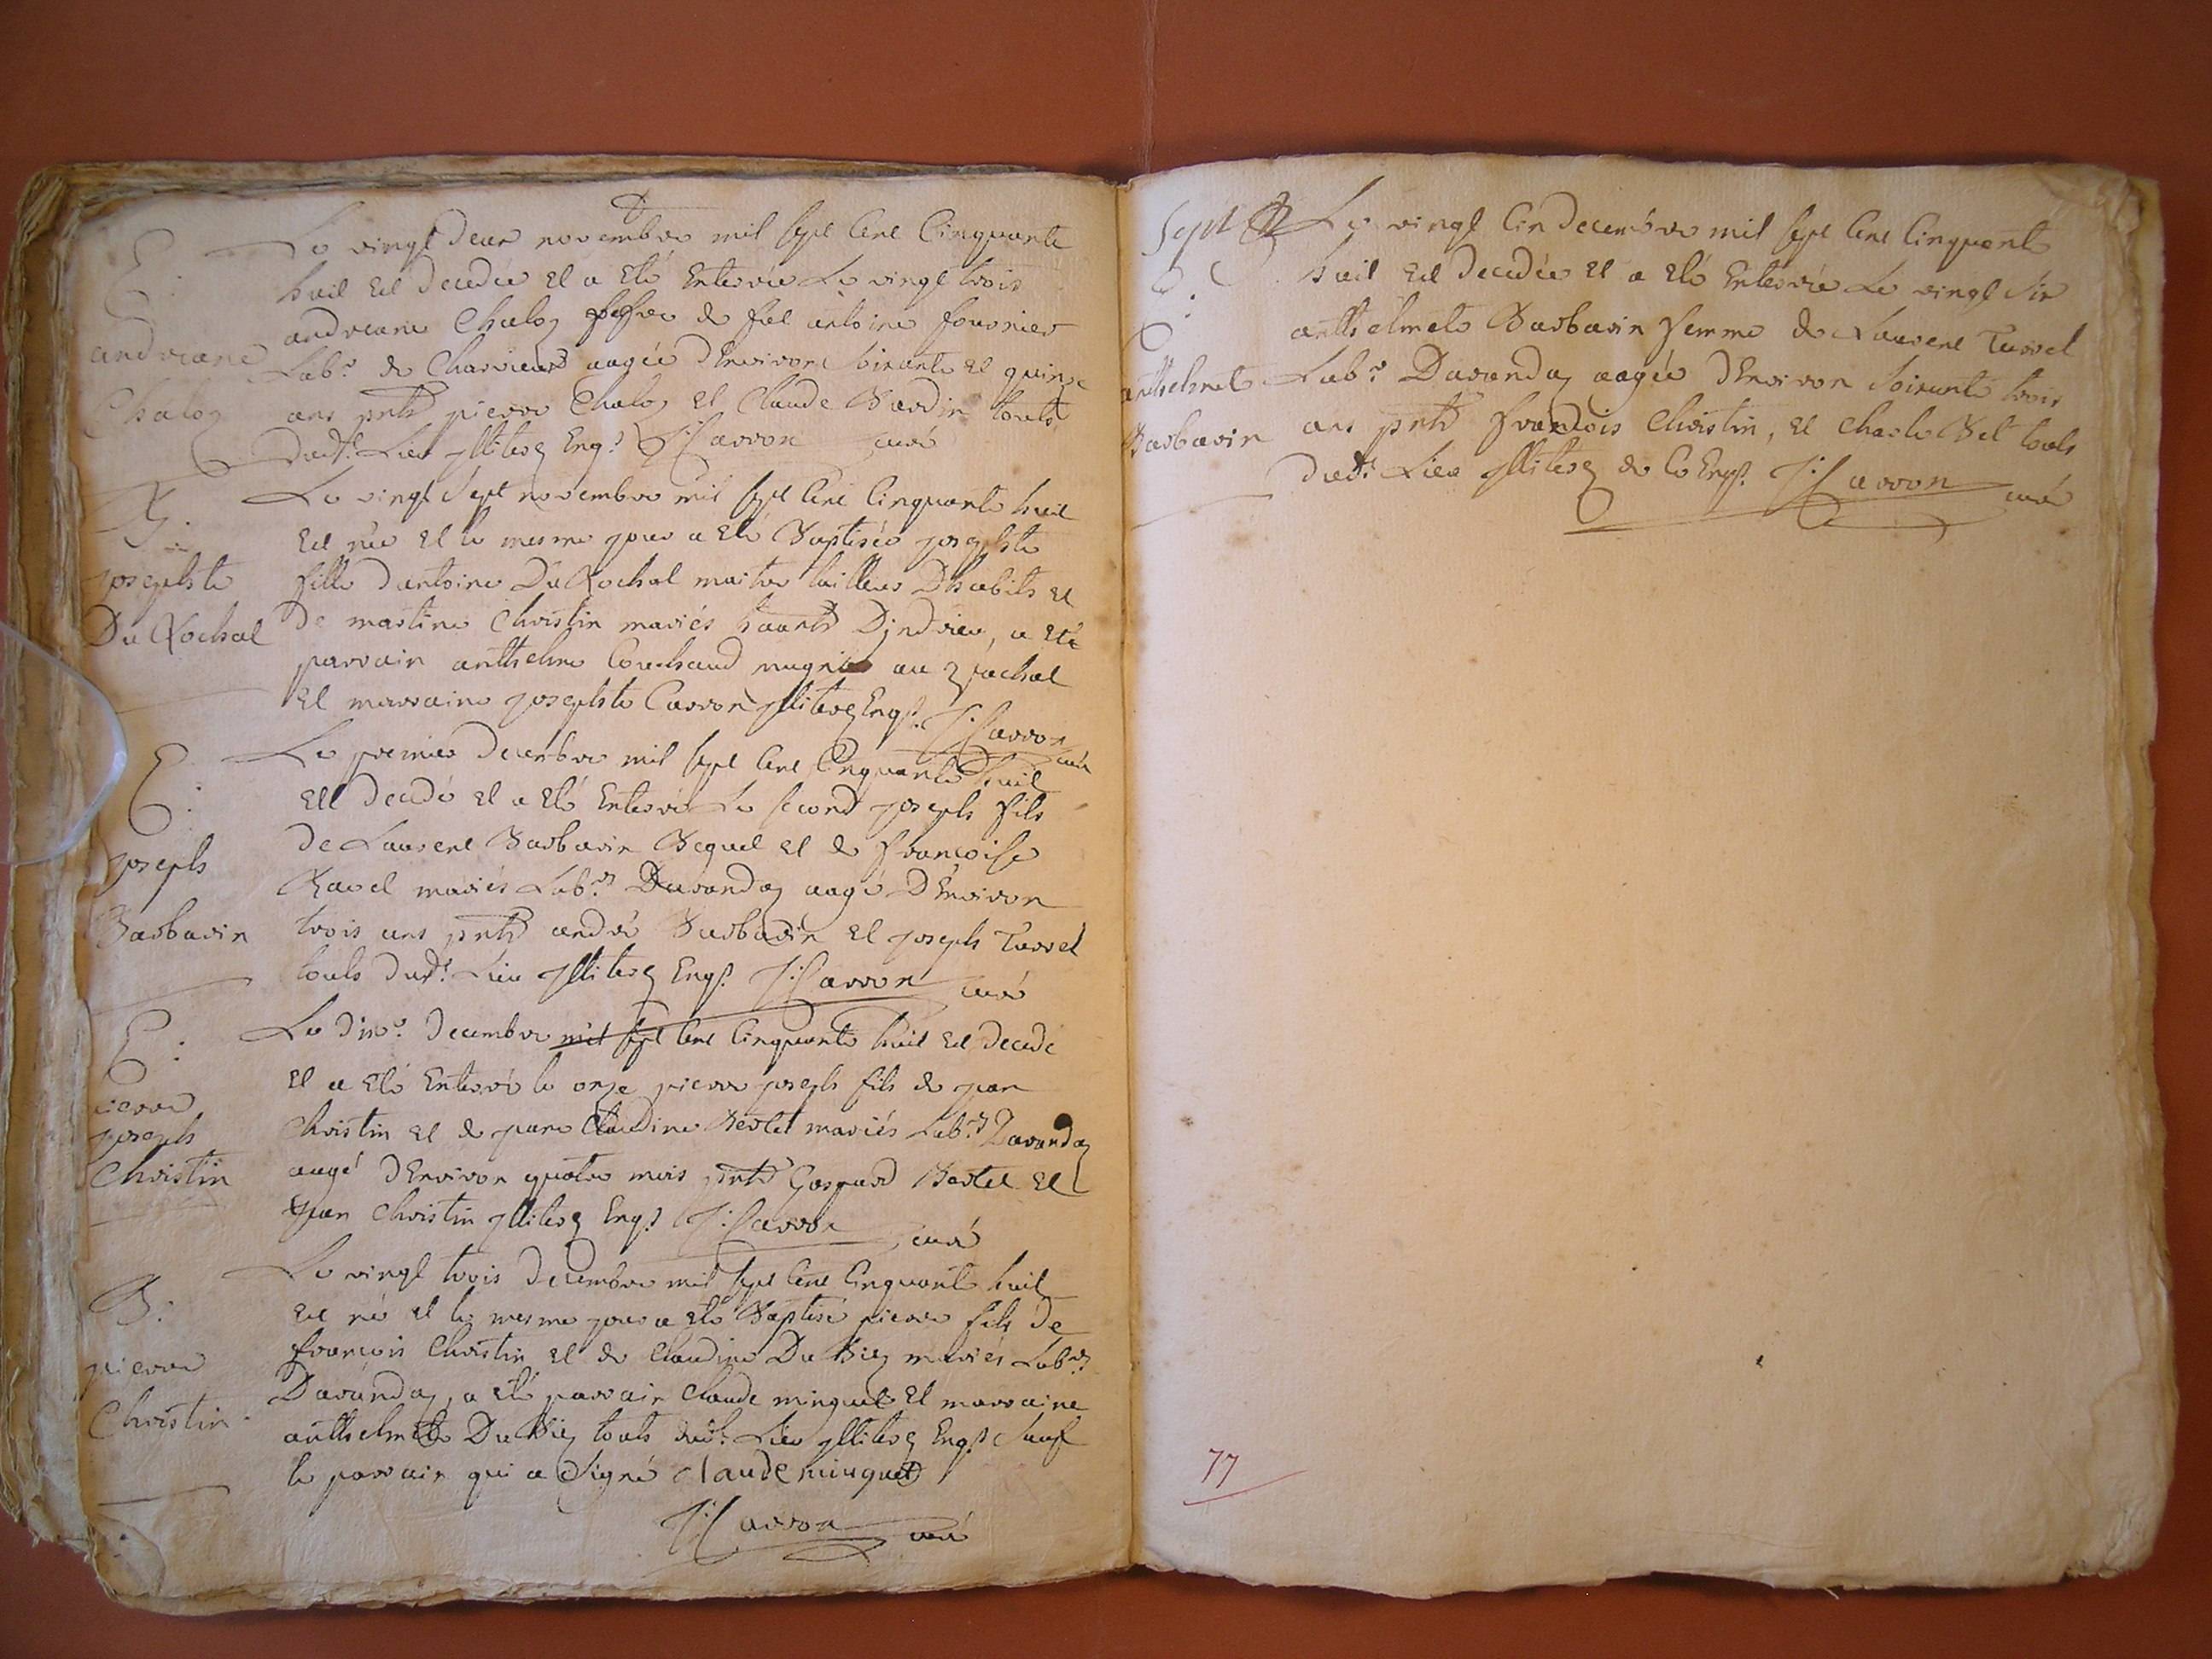 E.
andreane
Chaley
Le vingt deux novembre mil sept cent cinquante
huit est decedée et a eté enterrée Le vingt trois
andreane Chaley de feu antoine fournier
Lab.r de Charvieux aagée d'Environ soixante et quinze
ans pnts pierre Chaley et Claude Bardin touts
dud.t Lieu illiterez Enq.s J: Carron curé
B.
josephte
Du Rochat
Le vingt sept novembre mil sept cent cinquante huit
est née et le mesme jour a eté Baptisée josephte
fille d'antoine Du Rochat maitre tailleur D'habits et
De martine Christin mariés haants D'jndrieu, a eté
parrain anthelme Couchaud
et marraine josephte Carron illiterez Enq.s J: Carron
curé
E.
joseph
Barbarin
Le premier decembre mil sept cent Cinquante huit
est decedé et a eté Enterré Le second joseph fils
De Laurent Barbarin Bequet et de francoise
Ravel mariés Lab.rs Davanday aagé D'Environ
trois ans pnts andré Barbarin et joseph Turrel
touts dud.t Lieu illiterez Enq.s J: Carron curé
E.
pierre
joseph
Christin
Le decembre mil sept cent cinquante huit est decede
et a eté Enterré le onze pierre joseph fils de jean
Christin et de jeane Claudine Bertet mariés Lab.rs Davanday
aagé D'Environ quatre mois pnts Gaspard Bertet et
jean Christin illiterez Enq.s J: Carron curé
B.
pierre
Christin
Le vingt trois decembre mil sept cent cinquante huit
est né et le mesme jour a eté Baptisé pierre fils de
françois Christin et de Claudine Du Biez mariés Lab.rs
Davanday, a eté parrain Claude minguet et marraine
anthelmette Du Biez touts dud.t Lieu illiterez Enq.s Sauf
le parrain qui a Signé Claude minguet
J: Carron curé
Sept.
E.
anthelmete
Barbarin
Le vingt cin decembre mil sept cent cinquante
huit est decedée et a eté Enterrée Le vingt Six
anthelmete Barbarin femme de Laurent Turrel
Lab.r Davanday aagée D'Environ Soixante trois
ans pnts françois Christin, et Charle Bel touts
dud.t Lieu illiterez de ce Enq.s J: Carron curé
77